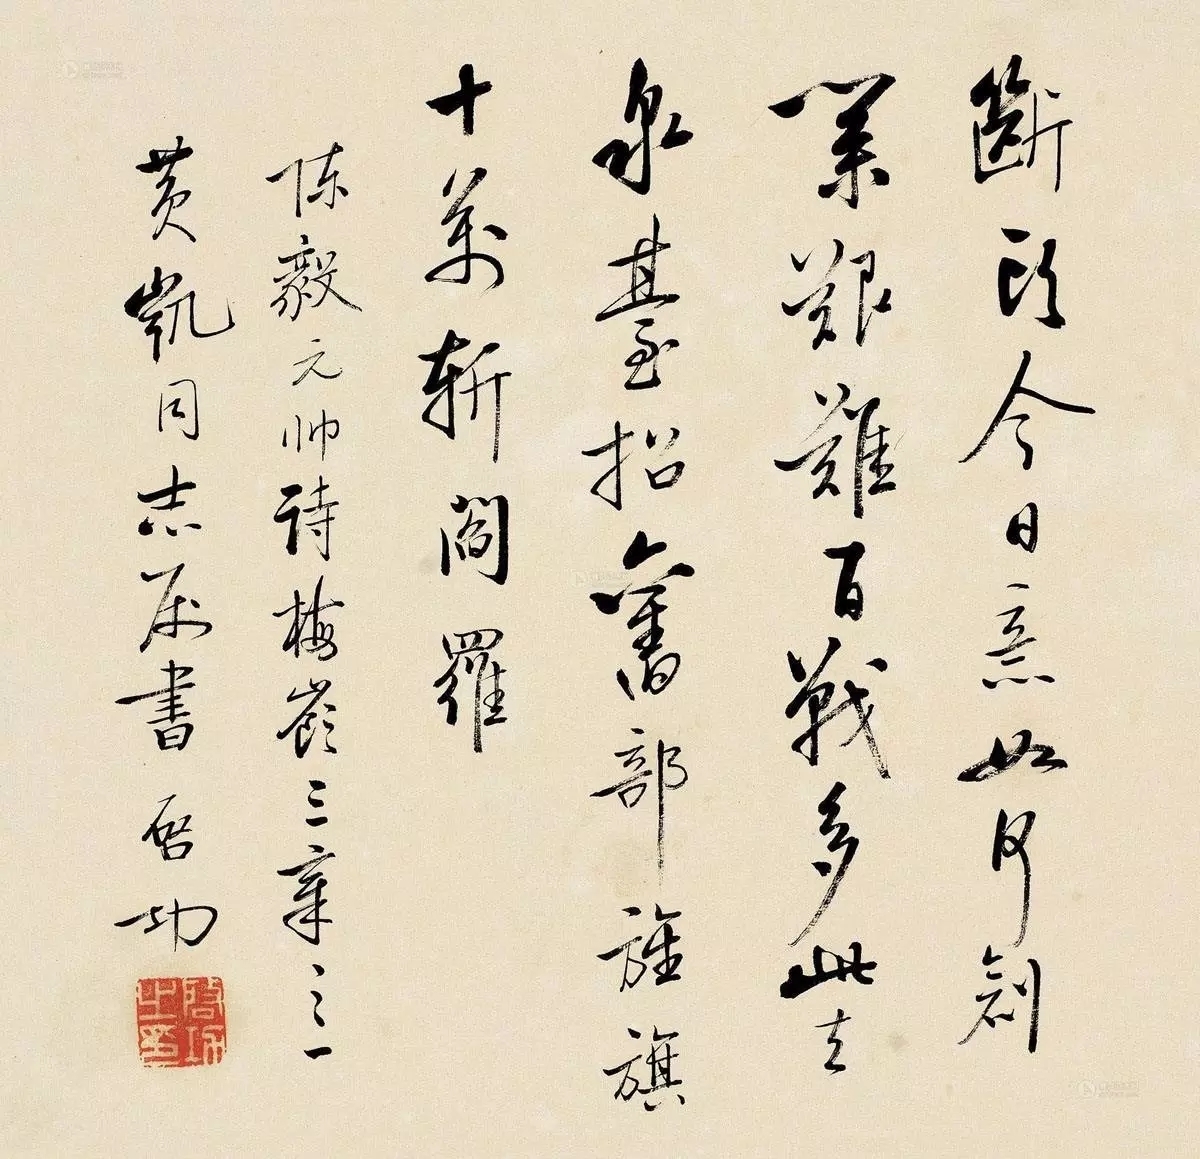 斷頭今日意如何創
業艱難百戰多此去
泉臺招舊部旌旗
十萬斬閻羅
陈毅元帅诗梅嶺三章之一
黄凱同志属書 启功
啓功之印